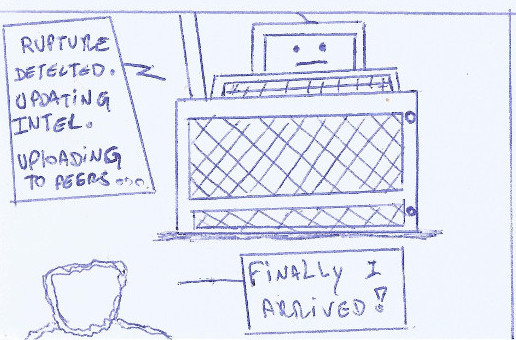 RUPTURE
DETECTED.
UPDATING
INTEL.
UPLOADING
TO PEERS....
FINALLY I
ARRIVED!